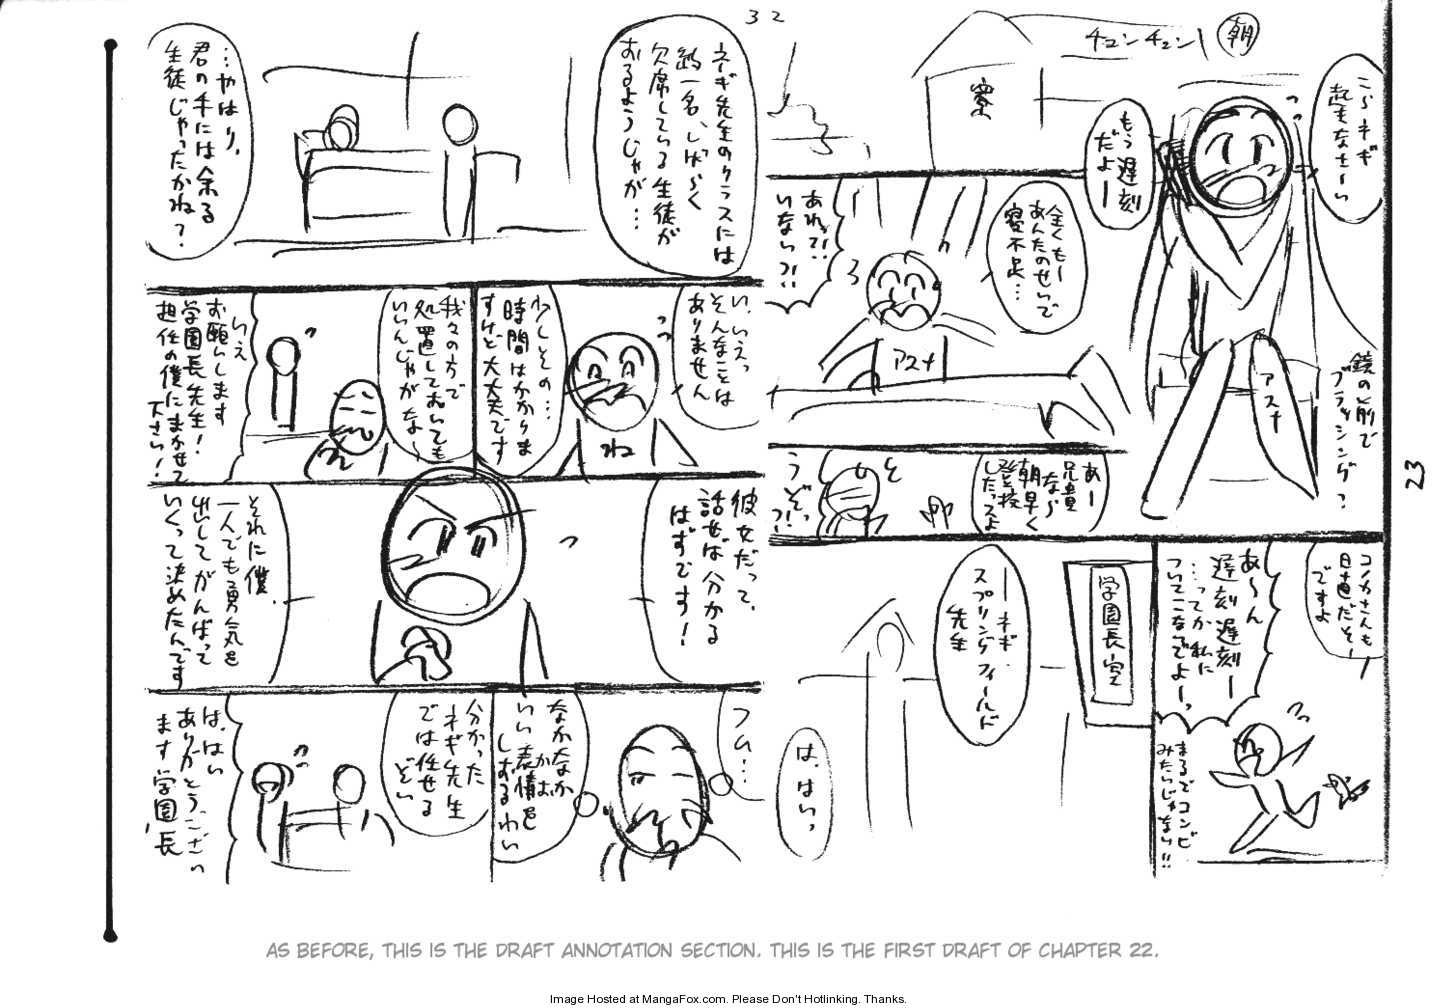 32
朝
チュンチュン
寮
こ〜ネギ
起きなさーい
もう遅刻
だよー
鏡の前で
ブラッシング?
アスナ
全くもー
あんたのせいで
寝不足…
あれ?!
いない?!
アスナ
あー
兄貴
なら
朝早く
登校
したっスよ
うそ
コノカさんも
日直だそー
ですよ
あ〜ん
遅刻遅刻ー
…ってか私に
ついてこないでよーっ
まるでコンビ
みたいじゃない!!
学園長室
ーネギ・
スプリングフィールド
先生
は、はいっ
23
ネギ先生のクラスには
約一名、しばらく
欠席している生徒が
おるようじゃが…
…やはり、
君の手には余る
生徒じゃったかね?
い、いえっ
そんなことは
ありません
少しその…
時間はかかりま
すけど大丈夫です
ね
我々の方で
処置しておいても
いいんじゃがなー
いえ
お願いします
学園長先生!
担任の僕にまかせて
下さい!
彼女だって、
話せば分かる
はずです!
それに僕、
一人でも勇気を
出してがんばって
いくって決めたんです
フム…
なかなか
いい表情を
かお
しおるわい
分かった
ネギ先生
では任せる
ぞい
は、はい
ありがとうございい
ます学園長
AS BEFORE, THIS IS THE DRAFT ANNOTATION SECTION. THIS IS THE FIRST DRAFT OF CHAPTER 22.
Image Hosted at MangaFox.com. Please Don't Hotlinking. Thanks.